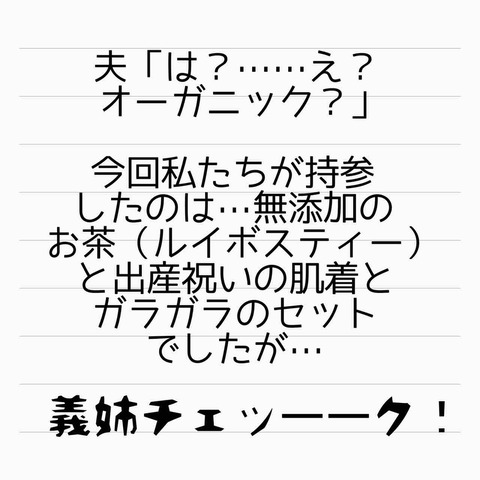 夫「は？……え？
オーガニック？」
今回私たちが持参
したのは…無添加の
お茶（ルイボスティー）
と出産祝いの肌着と
ガラガラのセット
でしたが…
義姉チェッーーク！